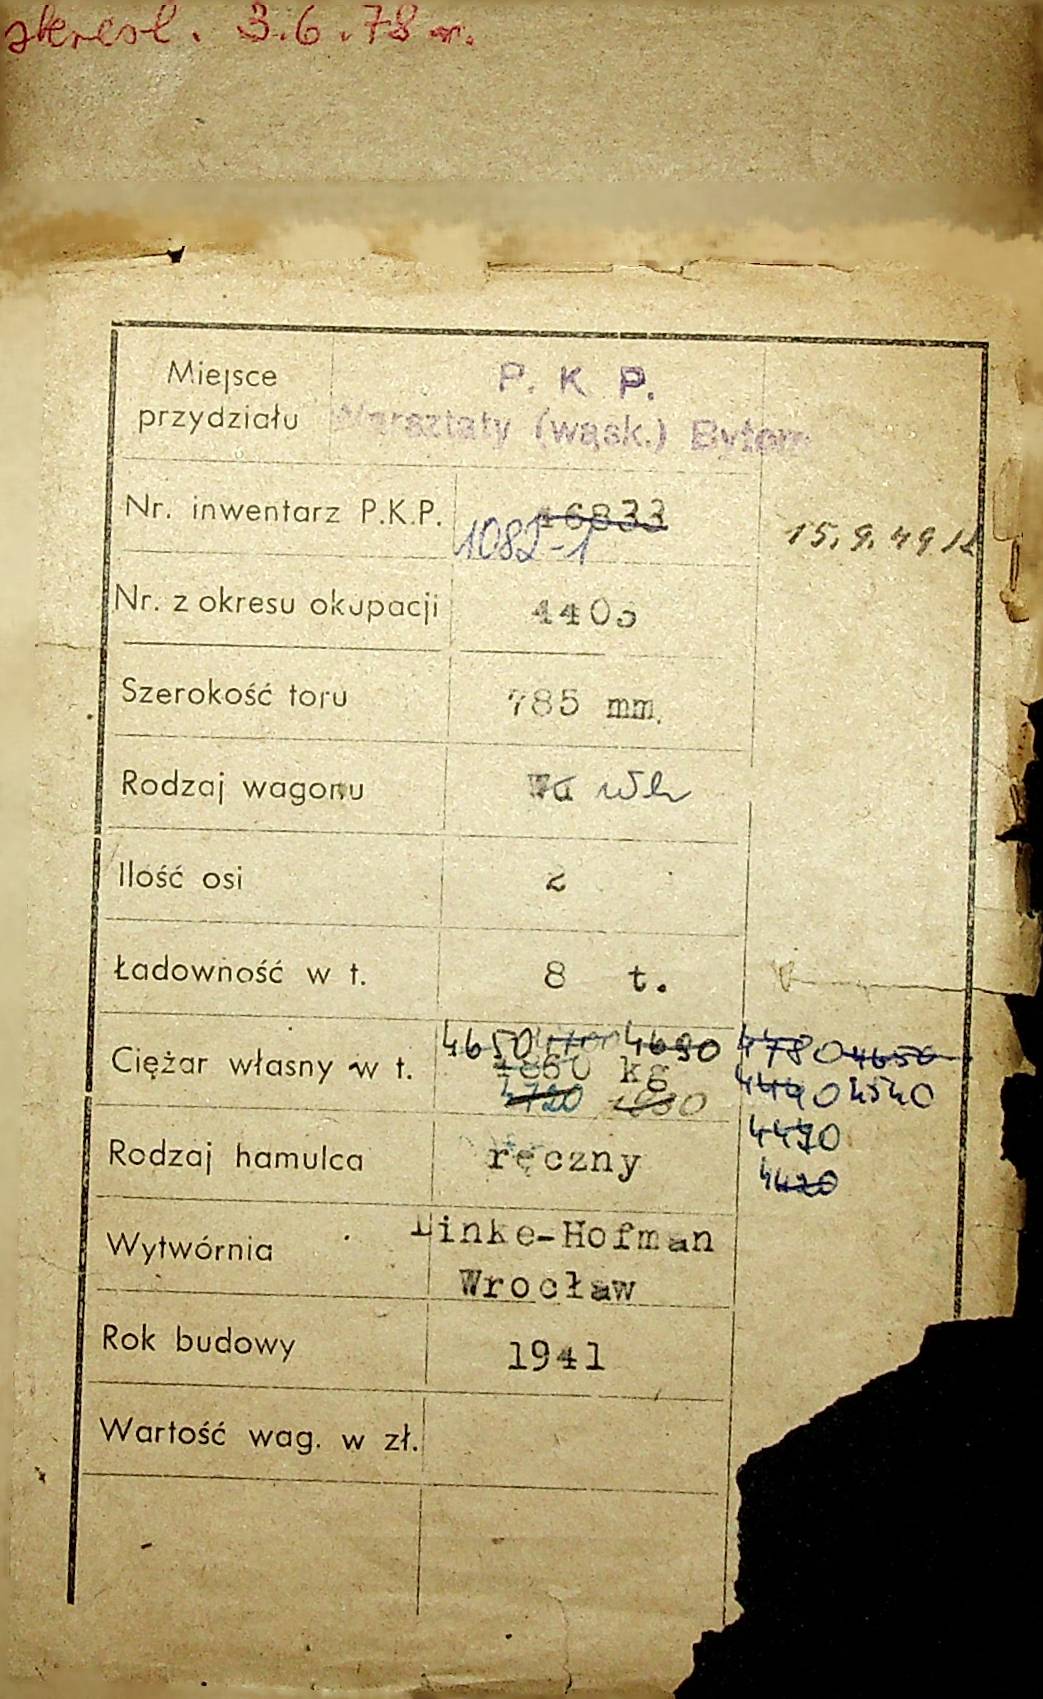 skresl. 3.6.78 r.
Miejsce przydziału
P. K P.
Warsztaty (wąsk.) Bytom
Nr. inwentarz P.K.P. 16833
1082-1
15.9.49
Nr. z okresu okupacji
Szerokość toru 785 mm.
Rodzaj wagonu
Ilość osi 2
Ładowność w t. 8 t.
4650 4690 4780 4650
Ciężar własny w t. 4860 kg
4720 4490 4540
4490
Rodzaj hamulca ręczny
4420
Wytwórnia Linke-Hofman
Wrocław
Rok budowy 1941
Wartość wag. w zł.